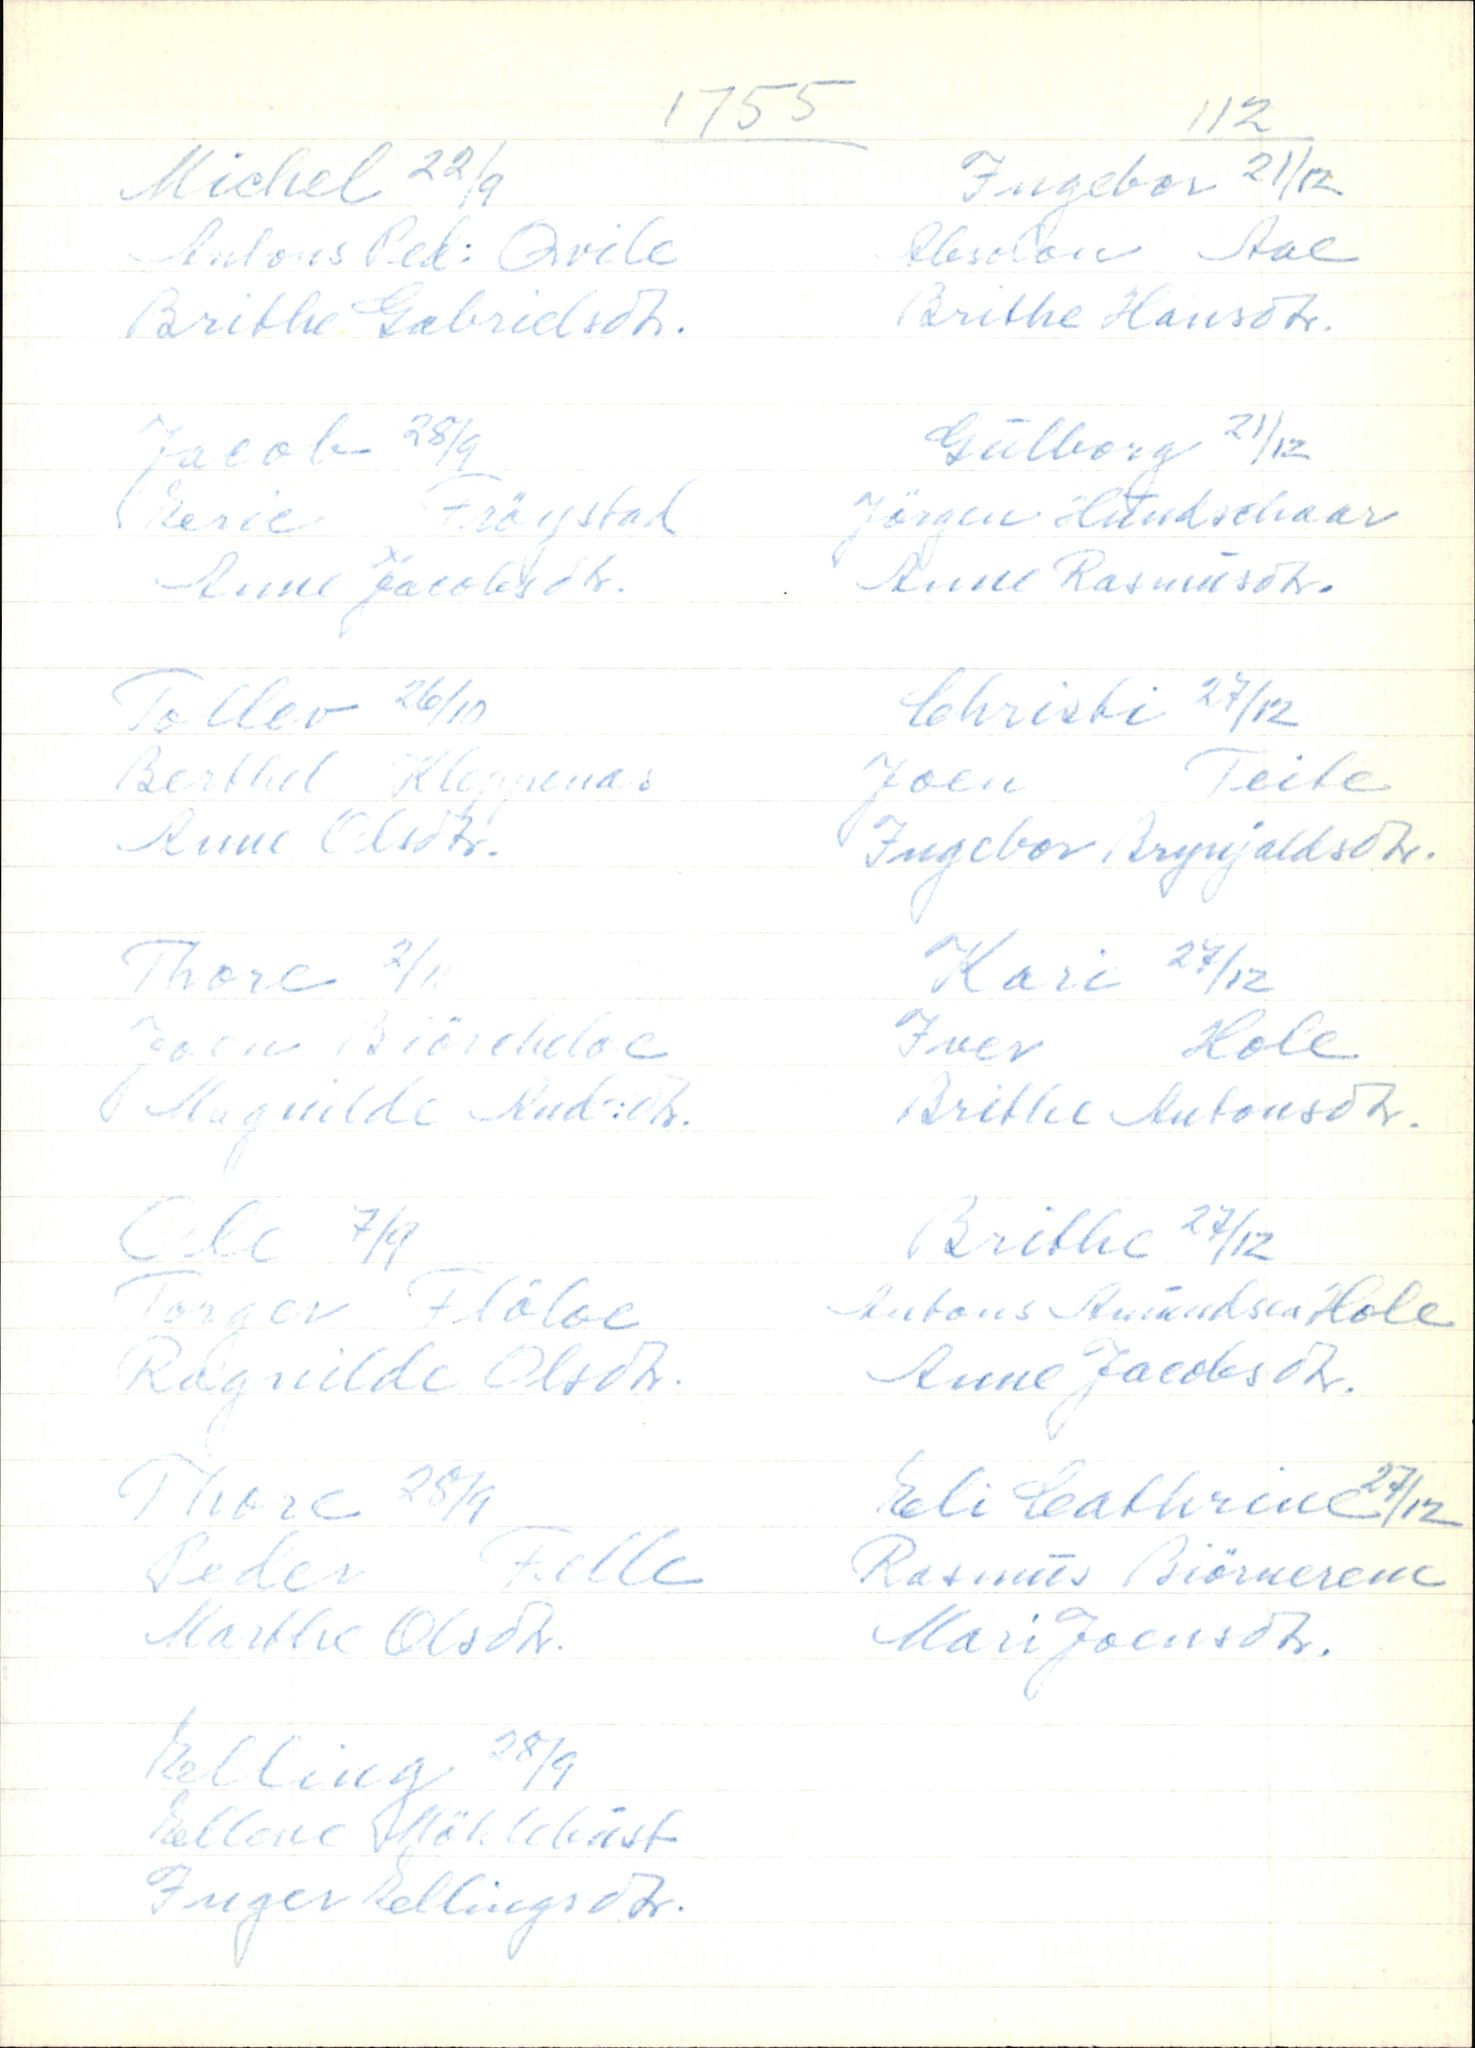 1755
112
Michel 22/9
Antons Ped: Qvile
Brithe Gabrielsdtr.
Jacob 28/9
Eeric Fröystad
Anne Jacobsdtr.
Tollev 26/10
Berthel Kleppenas
Anne Olsdtr.
Thore 2/11
Joen Biörchdoe
Magnilde And:dtr.
Ole 7/9
Torger Flöloe
Ragnilde Olsdtr.
Thore 28/9
Peder Felle
Marthe Olsdtr.
Eelling 28/9
Ellene Möhlebüst
Inger Eellingsdtr.
Ingebor 21/12
Absolon Aae
Brithe Hansdtr.
Gülborg 21/12
Jörgen Hündschaar
Anne Rasmüsdtr.
Christi 27/12
Joen Teite
Ingebor Brynjaldsdtr.
Kari 27/12
Iver Hole
Brithe Antonsdtr.
Brithe 27/12
Antons Amündsen Hole
Anne Jacobsdtr.
Eeli Cathrine 27/12
Rasmüs Biörnerem
Mari Joensdtr.